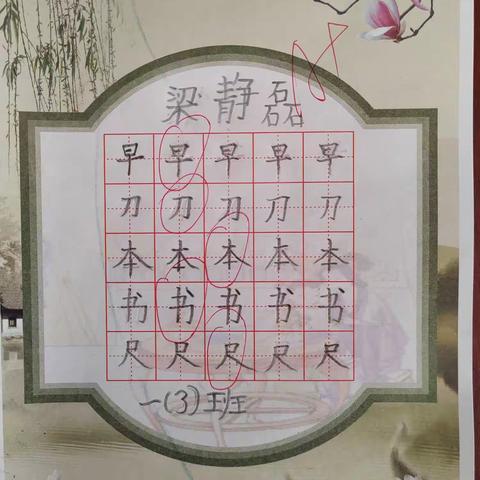 梁静磊
早早早早早
刀刀刀刀刀
本本本本本
书书书书书
尺尺尺尺尺
一(3)班